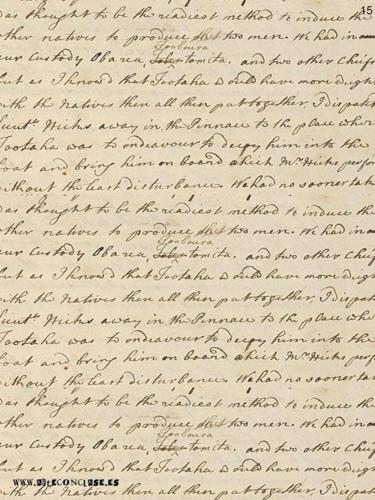 15
was thought to be the readiest method to induce the
other natives to produce the two men. We had in
Tooboura
our Custody Obarea, tomita. and two other Chiefs
but as I know'd that Tootaha would have more weight
with the Natives then all then put together, I dispatch
Lieut. Hicks away in the Pinnace to the place where
Tootaha was to endeavour to decoy him into the
boat and bring him on board which Mr. Hicks perfor
without the least disturbance. We had no sooner tak
was thought to be the readiest method to induce the
other natives to produce the two men. We had in
Tooboura
our Custody Obarea, tomita. and two other Chiefs
but as I know'd that Tootaha would have more weight
with the Natives then all then put together, I dispatch
Lieut. Hicks away in the Pinnace to the place where
Tootaha was to endeavour to decoy him into the
boat and bring him on board which Mr. Hicks perfor
without the least disturbance. We had no sooner tak
was thought to be the readiest method to induce the
other natives to produce the two men. We had in
Tooboura
our Custody Obarea, tomita. and two other Chiefs
but as I know'd that Tootaha would have more weight
with the Natives then all then put together, I dispatch